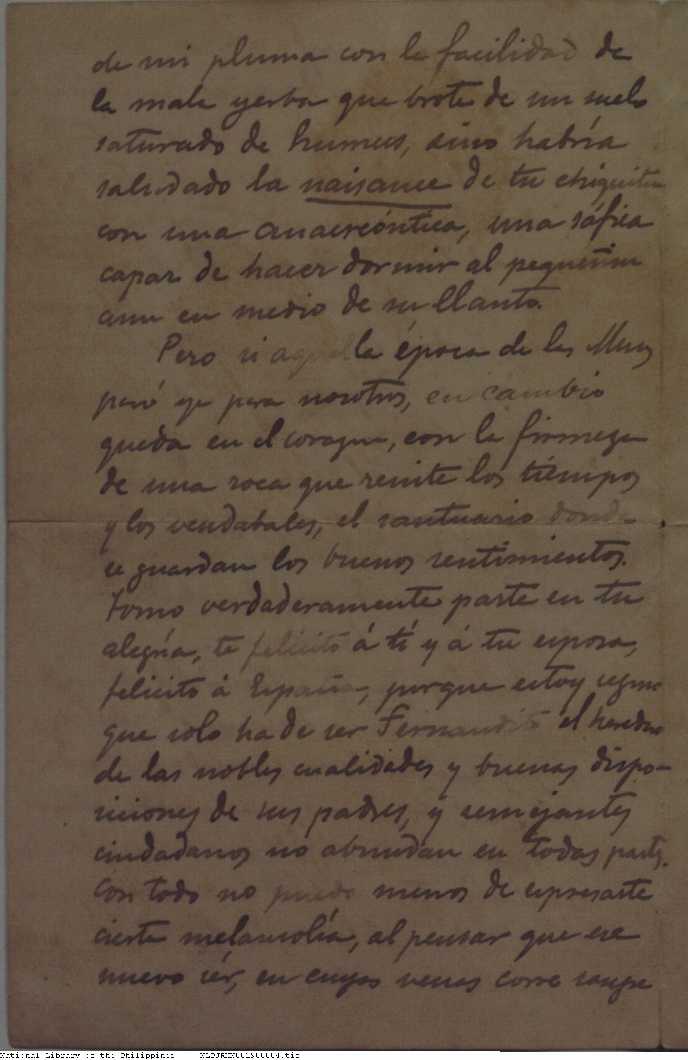 de mi pluma con la facilidad de
la mala yerba que brota de un suelo
saturado de humus, sino habría
saludado la naisance de tu chiquitin
con una anacreóntica, una sáfica
capaz de hacer dormir al pequeñin
aun en medio de su llanto.
Pero si aquella época de las Musas
pasó ya para nosotros, en cambio
queda en el corazon, con la firmeza
de una roca que resiste los tiempos
y los vendabales, el santuario donde
se guardan los buenos sentimientos.
Tomo verdaderamente parte en tu
alegría, te felicito á tí y á tu esposa,
felicito á España, porque estoy seguro
que solo ha de ser Fernandito el heredero
de las nobles cualidades y buenas dispo-
siciones de sus padres, y semejantes
ciudadanos no abundan en todas partes.
Con todo no puedo menos de espresarte
cierta melancolía, al pensar que ese
nuevo sér, en cuyas venas corre sangre
National Library of the Philippines